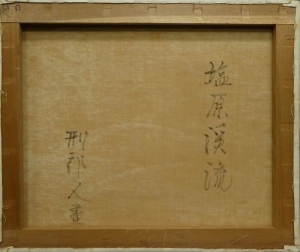 塩原渓流
刑部人画